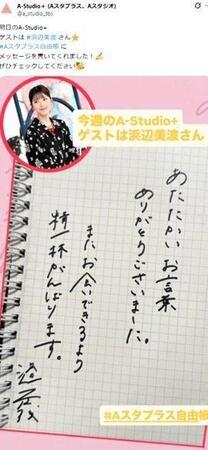 A-Studio+ (Aスタプラス、Aスタジオ)
@a_studio_tbs
明日のA-Studio+
ゲストは #浜辺美波 さん
#Aスタプラス自由帳 に
メッセージを書いてくれました！
ぜひチェックしてください
今週のA-Studio+
ゲストは浜辺美波さん
あたたかい お言葉
ありがとうございました。
またお会いできるよう
精一杯がんばります。
#Aスタプラス自由帳